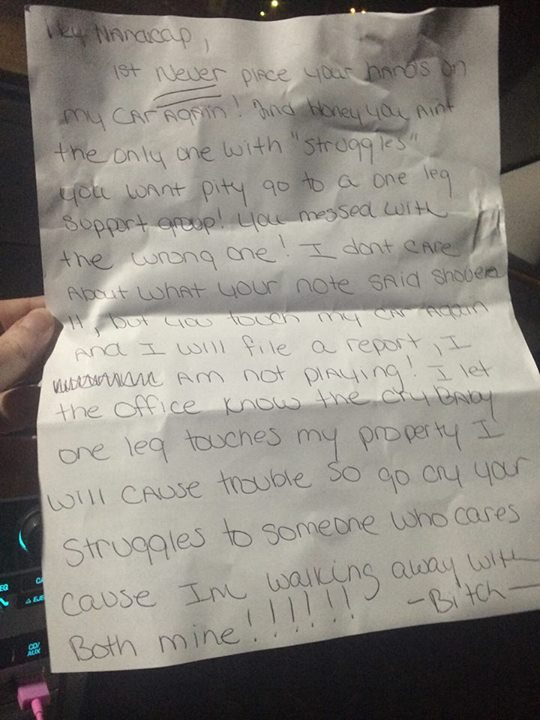 Hey Handicap,
1st Never place your hands on
my car again! and Honey you aint
the only one with "struggles"
you want pity go to a one leg
support group! You messed with
the wrong one! I dont care
about what your note said shove
it, but you touch my car again
and I will file a report, I
am not playing! I let
the office know the cry baby
one leg touches my property I
will cause trouble so go cry your
struggles to someone who cares
cause Im walking away with
Both mine!!!!!!
-Bitch-
CD/
AUX